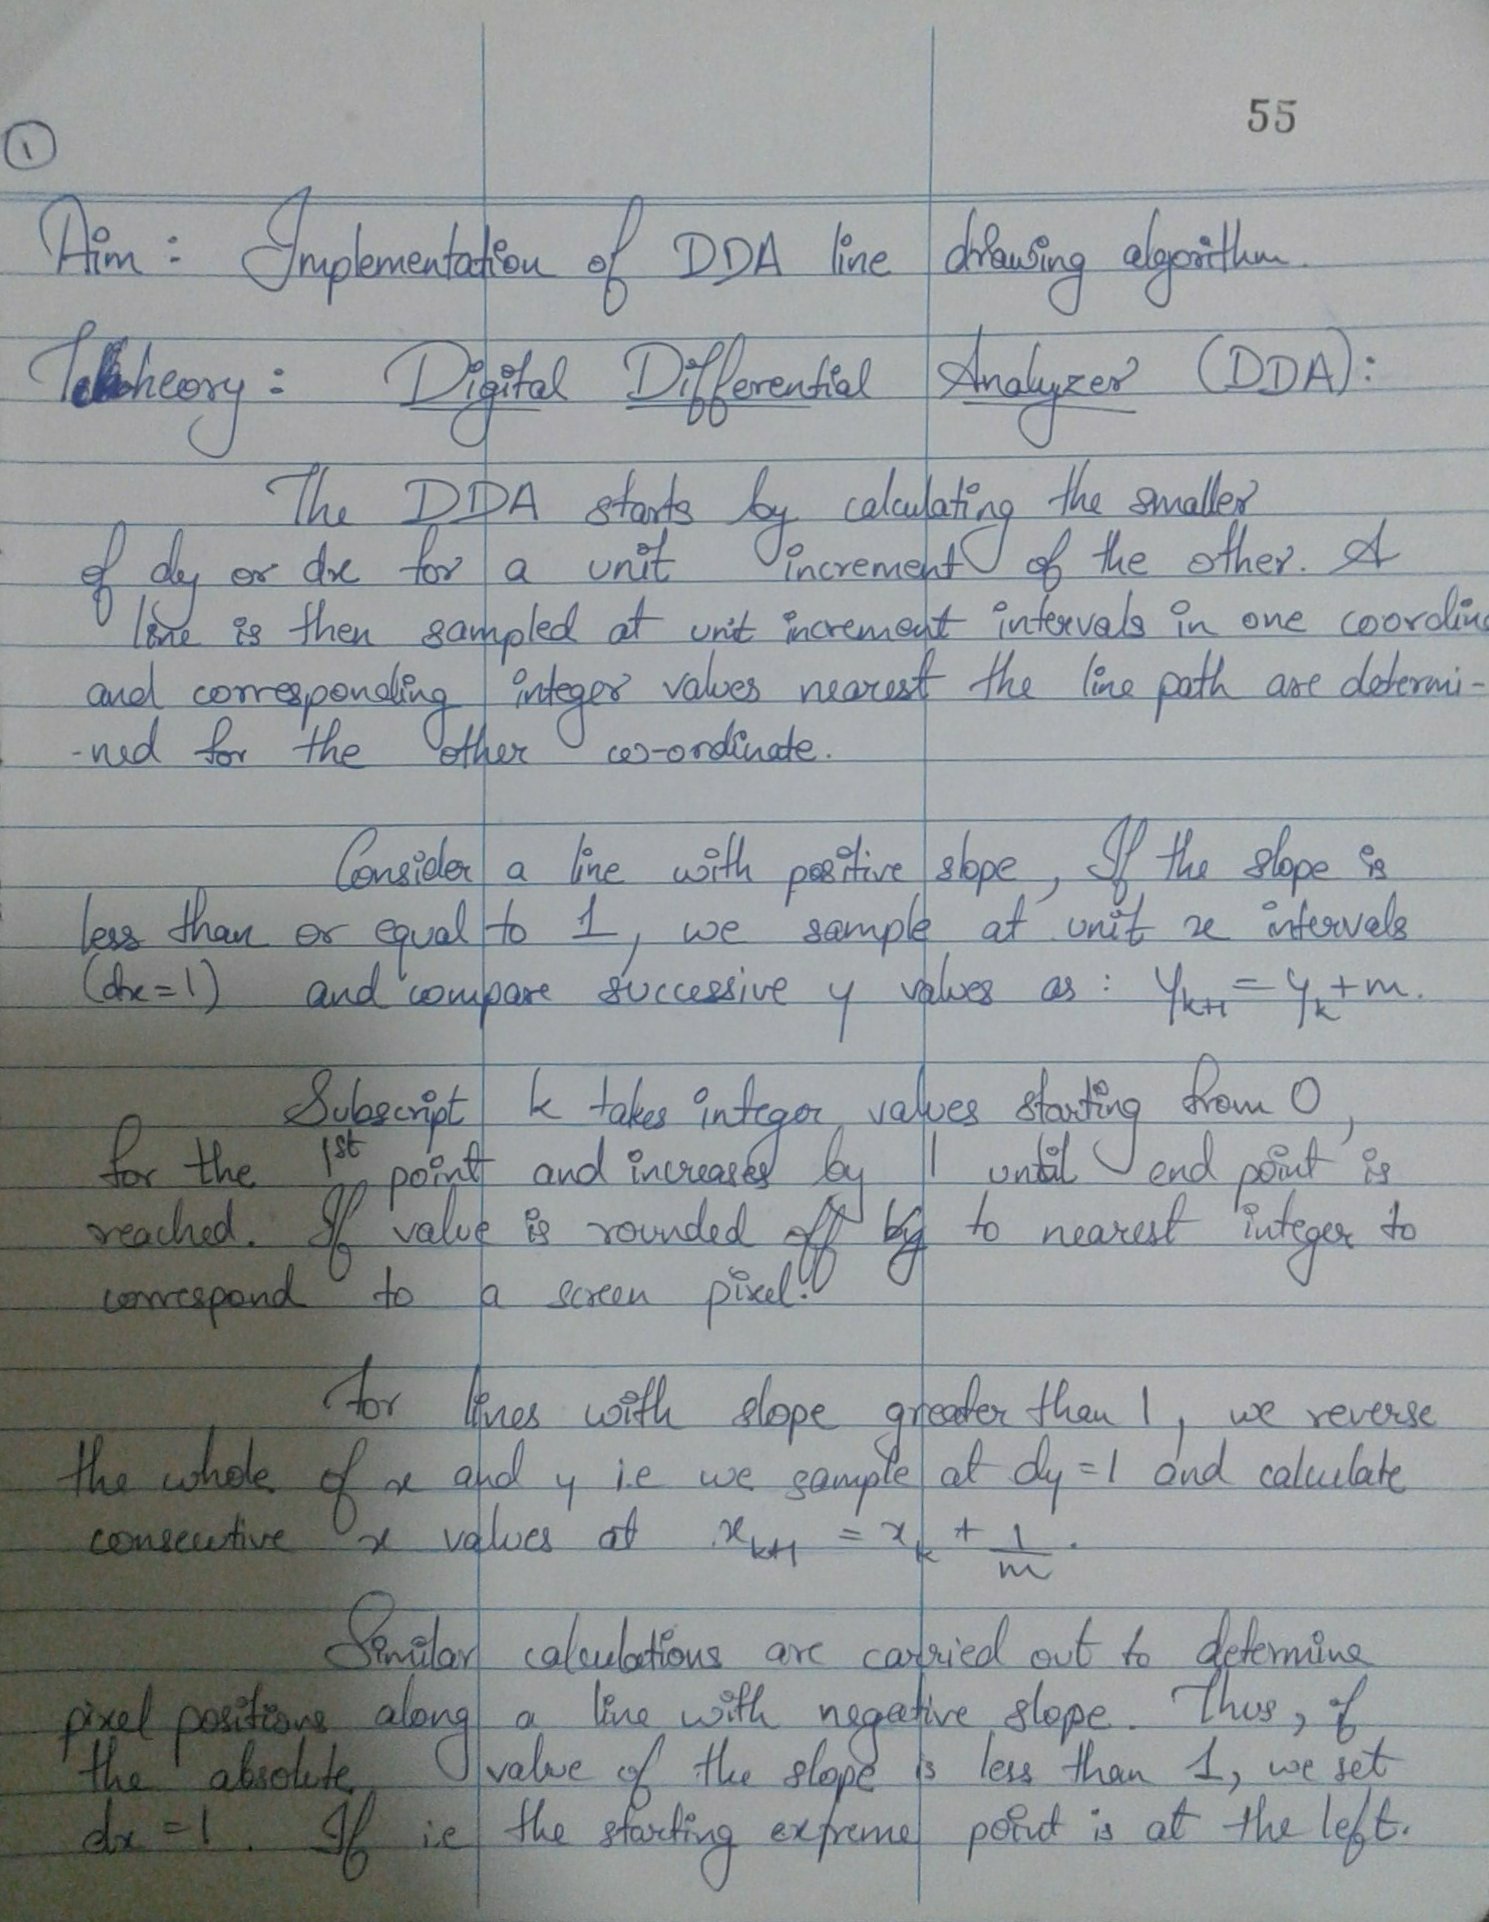 55
1
Aim : Implementation of DDA line drawing algorithm.
Theory : Digital Differential Analyzer (DDA) :
The DDA starts by calculating the smaller
of dy or dx for a unit increment of the other. A
line is then sampled at unit increment intervals in one coordin
and corresponding integer values nearest the line path are determi-
-ned for the other co-ordinate.
Consider a line with positive slope, If the slope is
less than or equal to 1, we sample at unit x intervals
(dx=1) and compare successive y values as : yₖ₊₁ = yₖ + m.
Subscript k takes integer values starting from 0,
for the 1st point and increases by 1 until end point is
reached. If value is rounded off to nearest integer to
correspond to a screen pixel.
For lines with slope greater than 1, we reverse
the whole of x and y i.e we sample at dy=1 and calculate
consecutive x values at xₖ₊₁ = xₖ + 1/m.
Similar calculations are carried out to determine
pixel positions along a line with negative slope. Thus, if
the absolute value of the slope is less than 1, we set
dx = 1. If i.e the starting extreme point is at the left.